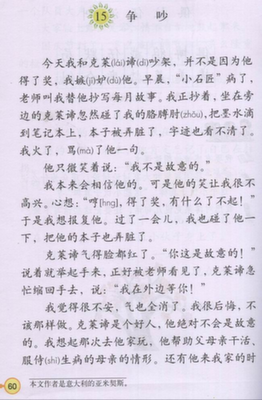 15 争吵
今天我和克莱(lài)谛(dì)吵架,并不是因为他
得了奖,我嫉(jí)妒(dù)他。早晨,“小石匠”病了,
老师叫我替他抄写每月故事。我正抄着,坐在旁
边的克莱谛忽然碰了我的胳膊肘(zhǒu),把墨水滴
到笔记本上。本子被弄脏了,字迹也看不清了。
我火了,骂(mà)了他一句。
他只微笑着说:“我不是故意的。”
我本来会相信他的。可是他的笑让我很不
高兴。心想:“哼[hng],得了奖,有什么了不起!”
于是我想报复他。过了一会儿,我也碰了他一
下,把他的本子也弄脏了。
克莱谛气得脸都红了。“你这是故意的!”
说着就举起手来,正好被老师看见了,克莱谛急
忙缩回手去,说:“我在外边等你!”
我觉得很不安,气也全消了。我很后悔,不
该那样做。克莱谛是个好人,他绝对不会是故意
的。我想起那次去他家玩,他帮助父母亲干活、
服侍(shì)生病的母亲的情形。还有他来我家的时
60 本文作者是意大利的亚米契斯。